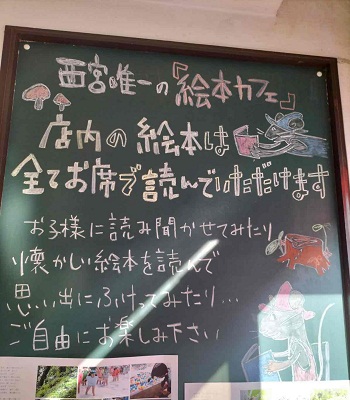 西宮唯一の『絵本カフェ』
店内の絵本は
全てお席で読んでいただけます
お子様に読み聞かせてみたり
懐かしい絵本を読んで
思い出にふけってみたり…
ご自由にお楽しみ下さい